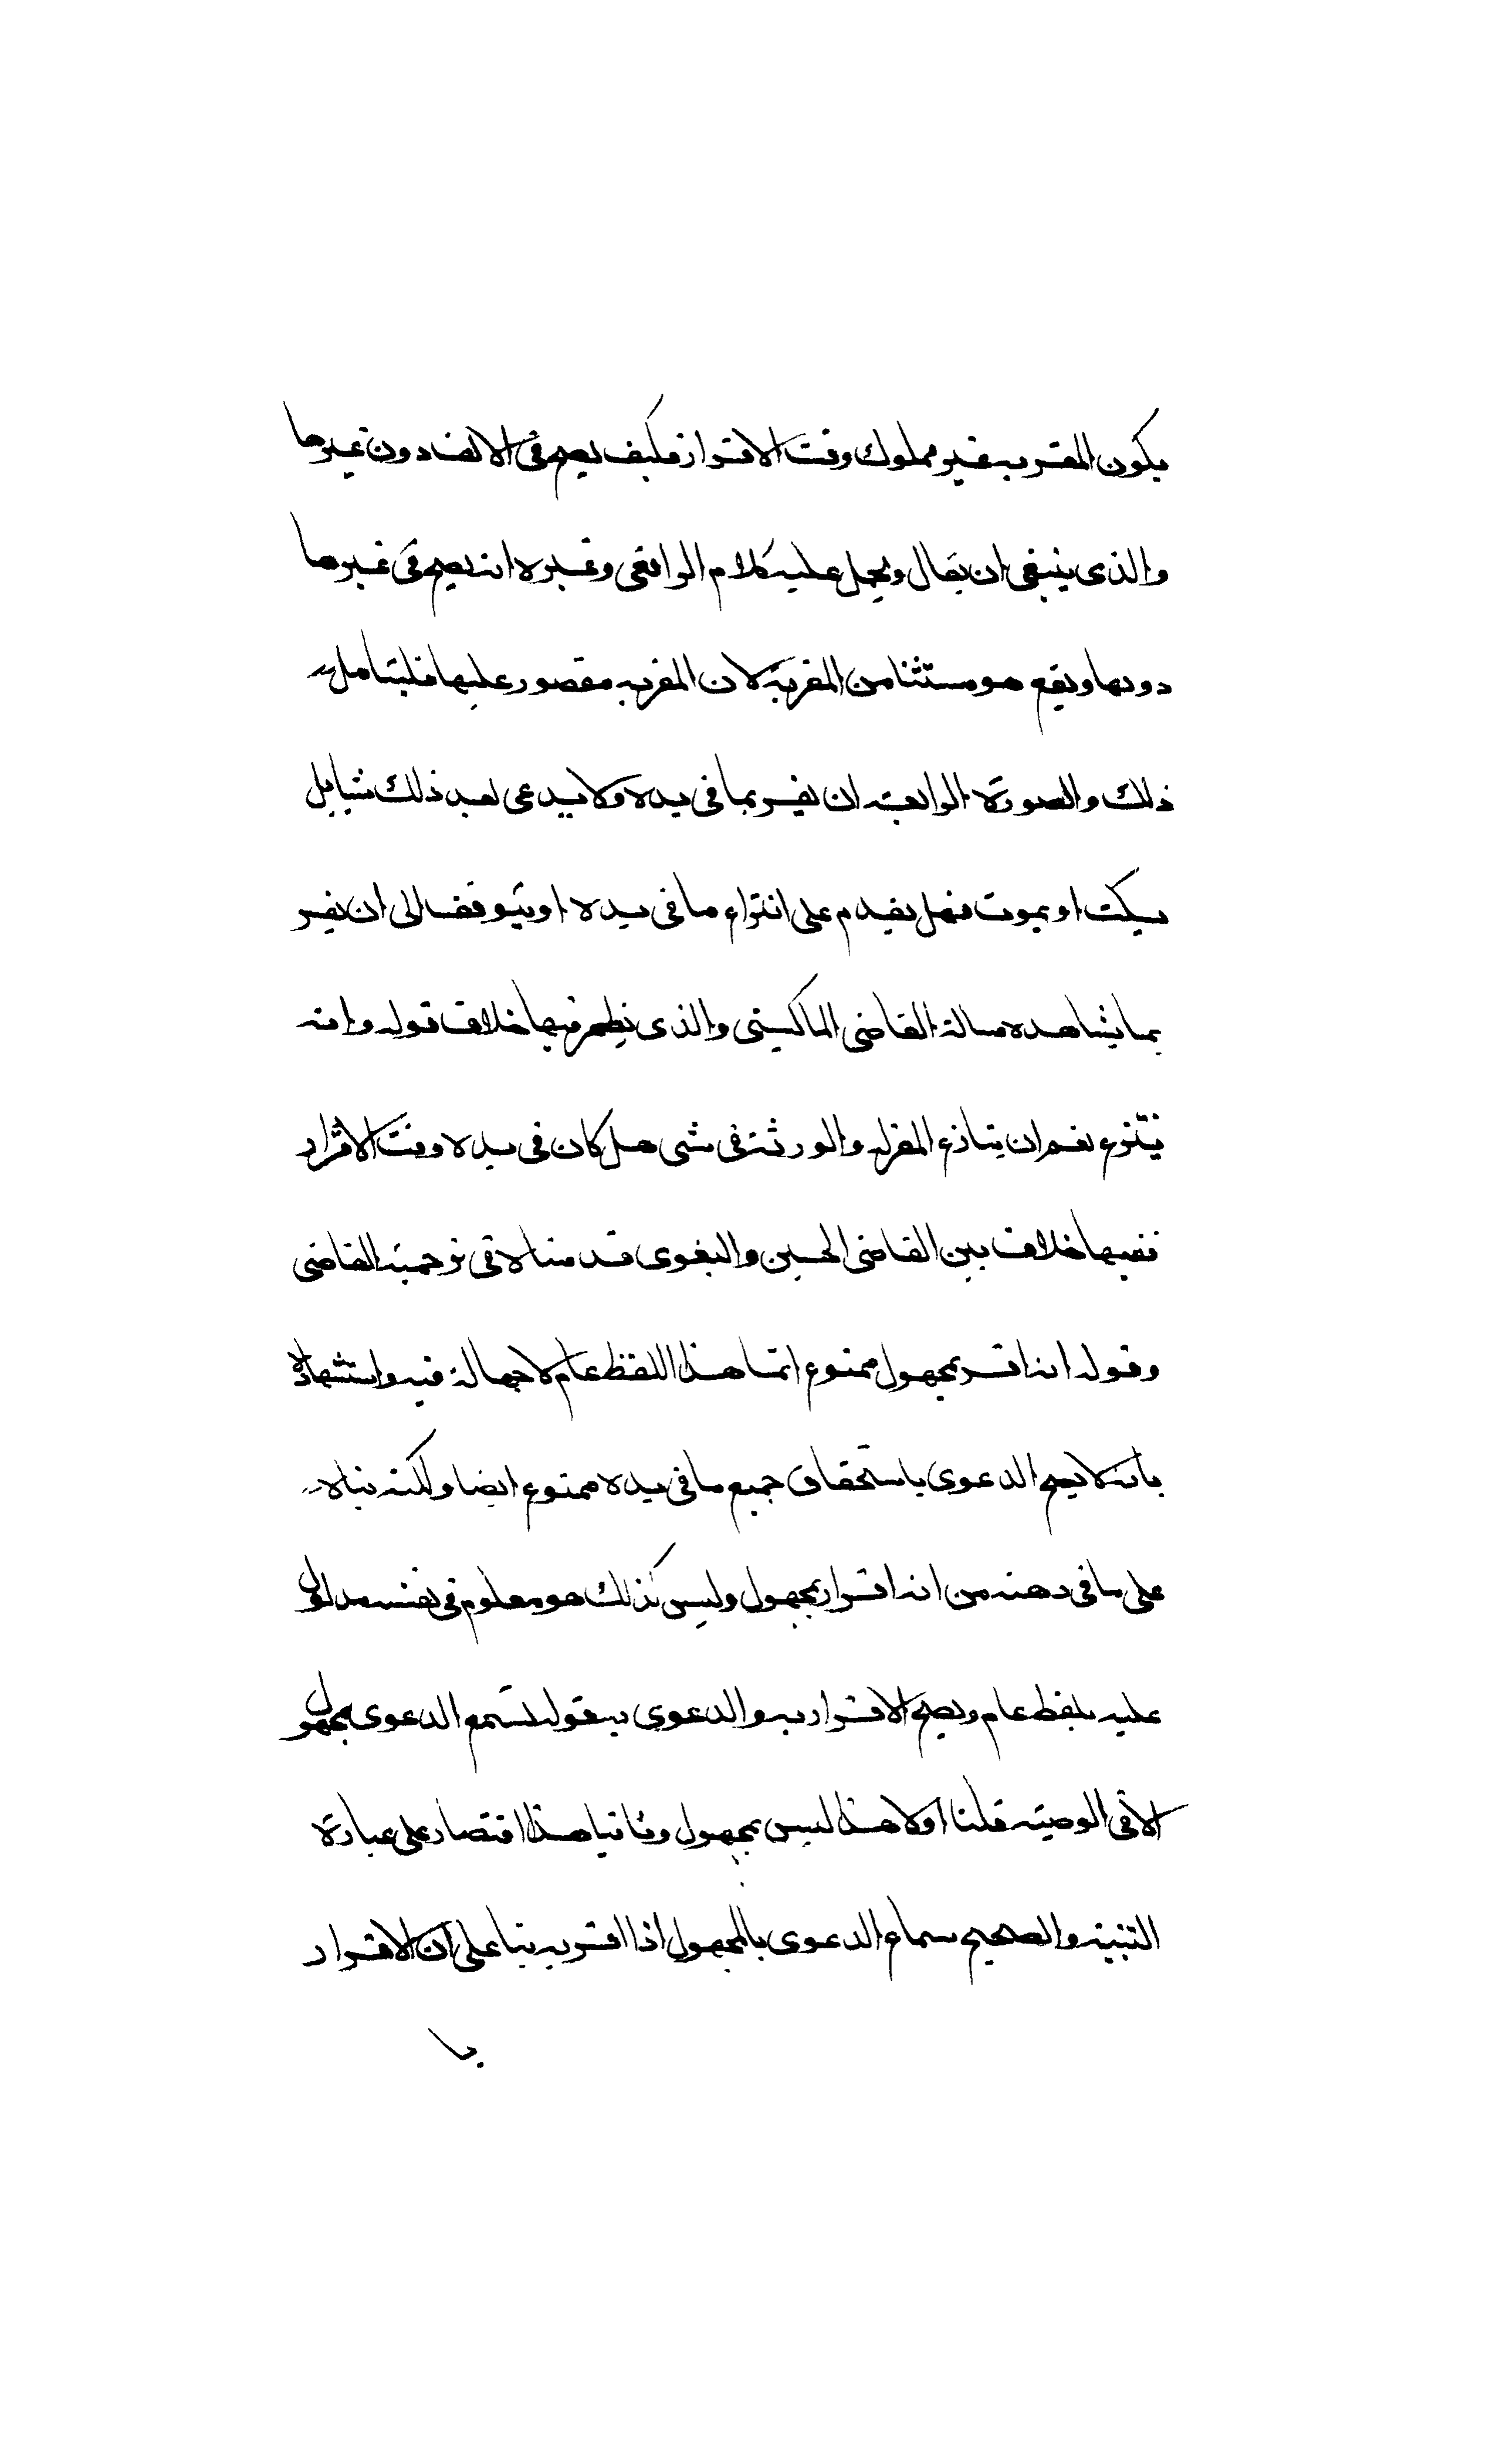 يكون المقر به غير مملوك وقت الاقرار فكيف يصح في الالف دون غيرها
والذى ينبغى ان يقال ويحمل عليه كلام الرافعى وغيره انه يصح في غيرها
دونها ويقع هو مستثنا من المقر به لان المقر به مقصور عليها فليتامل
ذلك والصورة الرابعة ان يقر بما في يده ولا يدعى بعد ذلك شيا بل
يسكت او يموت فهل يقدم على انتزاع ما في يده او يتوقف الى ان يفسر
بما يشاهده مسالة القاضى الماكسينى والذى يظهر فيها خلاف قوله وانه
ينتزع نعم ان يتنازع المقر له والورثة في شى هل كان في يده وقت الاقرار
ففيها خلاف بين القاضى الحسين والبغوى قدمناه في ترجمة القاضى
وقوله انه اقر بمجهول ممنوع انما هذا اللفظ عام لا جهالة فيه واستشهاده
بانه لا يصح الدعوى باستحقاق جميع ما في يده ممنوع ايضا ولكنه بناه
على ما في دهنه من انه اقرار بمجهول وليس كذلك هو معلوم في نفسه مدلول
عليه بلفظ عام ويصح الاقرار به والدعوى به قوله لا تسمع الدعوى بمجهول
الا في الوصية قلنا اولا هذا ليس بمجهول وثانيا هذا اقتصار على عبارة
التنبيه والصحيح سماع الدعوى بالمجهول اذا اقر به بنا على ان الاقرار
با